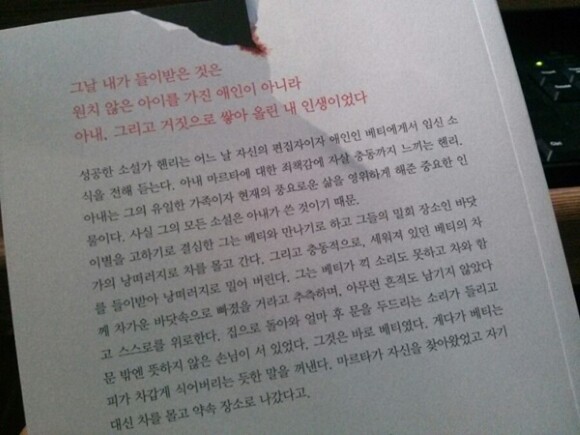 그날 내가 들이받은 것은
원치 않은 아이를 가진 애인이 아니라
아내, 그리고 거짓으로 쌓아 올린 내 인생이었다
성공한 소설가 헨리는 어느 날 자신의 편집자이자 애인인 베티에게서 임신 소
식을 전해 듣는다. 아내 마르타에 대한 죄책감에 자살 충동까지 느끼는 헨리.
아내는 그의 유일한 가족이자 현재의 풍요로운 삶을 영위하게 해준 중요한 인
물이다. 사실 그의 모든 소설은 아내가 쓴 것이기 때문.
이별을 고하기로 결심한 그는 베티와 만나기로 하고 그들의 밀회 장소인 바닷
가의 낭떠러지로 차를 몰고 간다. 그리고 충동적으로, 세워져 있던 베티의 차
를 들이받아 낭떠러지로 밀어 버린다. 그는 베티가 끽 소리도 못하고 차와 함
께 차가운 바닷속으로 빠졌을 거라고 추측하며, 아무런 흔적도 남기지 않았다
고 스스로를 위로한다. 집으로 돌아와 얼마 후 문을 두드리는 소리가 들리고
문 밖엔 뜻하지 않은 손님이 서 있었다. 그것은 바로 베티였다. 게다가 베티는
피가 차갑게 식어버리는 듯한 말을 꺼낸다. 마르타가 자신을 찾아왔었고 자기
대신 차를 몰고 약속 장소로 나갔다고.